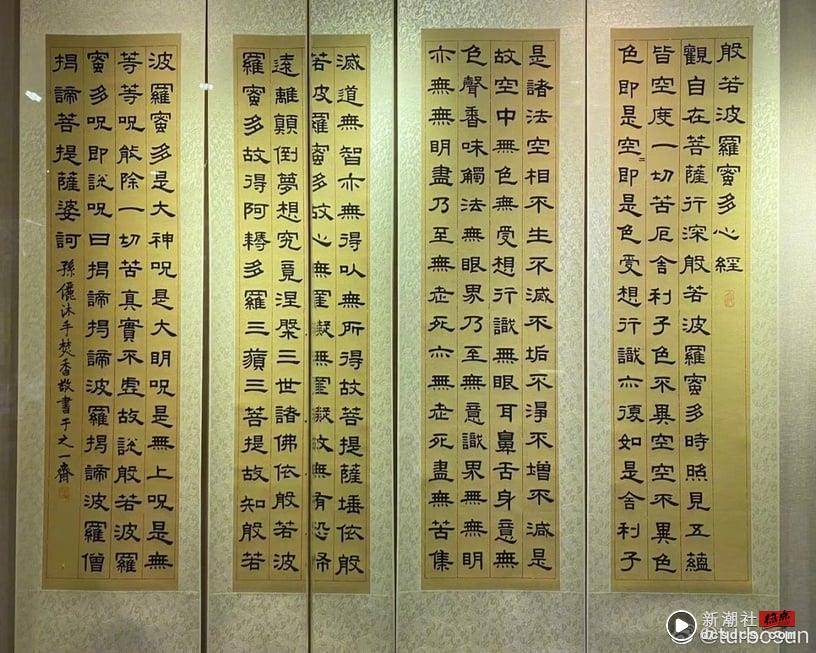 般若波羅蜜多心經
觀自在菩薩行深般若波羅蜜多時照見五蘊
皆空度一切苦厄舍利子色不異空空不異色
色即是空=即是色受想行識亦復如是舍利子
是諸法空相不生不滅不垢不淨不增不減是
故空中無色無受想行識無眼耳鼻舌身意無
色聲香味觸法無眼界乃至無意識界無無明
亦無無明盡乃至無老死亦無老死盡無苦集
滅道無智亦無得以無所得故菩提薩埵依般
若波羅蜜多故心無罣礙無罣礙故無有恐怖
遠離顛倒夢想究竟涅槃三世諸佛依般若波
羅蜜多故得阿耨多羅三藐三菩提故知般若
波羅蜜多是大神呪是大明呪是無上呪是無
等等呪能除一切苦真實不虛故說般若波羅
蜜多呪即說呪曰揭諦揭諦波羅揭諦波羅僧
揭諦菩提薩婆訶 孫儷沐手焚香敬書于之一齋
新潮社
@turbosun